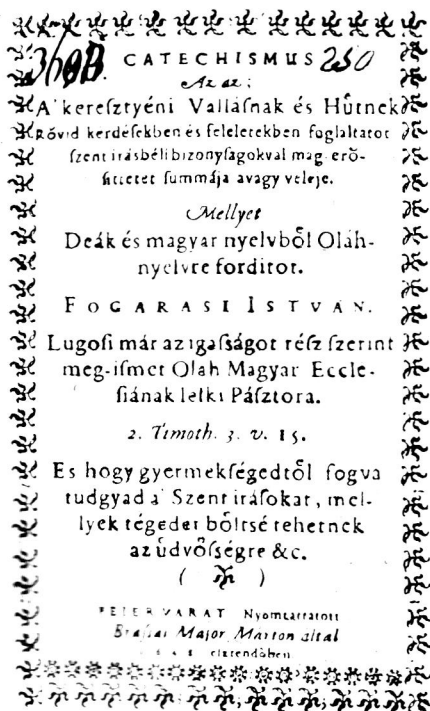 CATECHISMUS 250
Az az;
A' kereſztyéni Vallásnak és Hűtnek
Rővid kerdéſekben és feleletekben foglaltatot
ſzent irásbéli bizonyſagokval mag erő-
ſittetet ſummája avagy veleje.
Mellyet
Deák és magyar nyelvből Oláh-
nyelvre forditot.
FOGARASI ISTVAN.
Lugoſi már az igaſságot réſz ſzerint
meg-iſmet Olah Magyar Eccle-
ſiának lelki Páſztora.
2. Timoth. 3. v. 15.
Es hogy gyermekſégedtől fogva
tudgyad a' Szent iráſokat, mel-
lyek tégedet bőltsé tehetnek
az űdvőſségre &c.
FEJERVARAT Nyomtattatott
Braſſai Major Márton által
eſztendőben